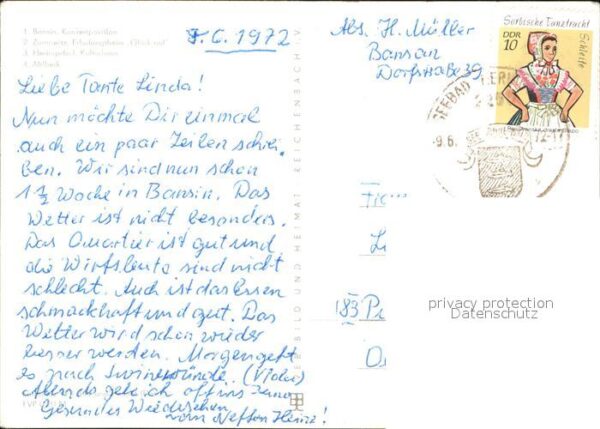 1. Bansin, Konzertpavillon
2. Zinnowitz, Erholungsheim „Glück auf“
3. Heringsdorf, Kulturhaus
4. Ahlbeck
.6. 1972
Liebe Tante Linda!
Nun möchte Dir einmal
auch ein paar Zeilen schrei-
ben. Wir sind nun schon
1 1/2 Woche in Bansin. Das
Wetter ist nicht besonders.
Das Quartier ist gut und
die Wirtsleute sind nicht
schlecht. Auch ist das Essen
schmackhaft und gut. Das
Wetter wird schon wieder
besser werden. Morgen geht
es nach Swinemünde. (Visum)
Abends gehe ich oft ins Kino
Gesundes Wiedersehen
vom Neffen Heinz!
BILD UND HEIMAT REICHENBACH I. V.
Abs. H. Müller
Bansin
Dorfstraße 39
Sorbische Tanztracht
Schleife
DDR
10
SEEBAD
9.6.
183
privacy protection
Datenschutz